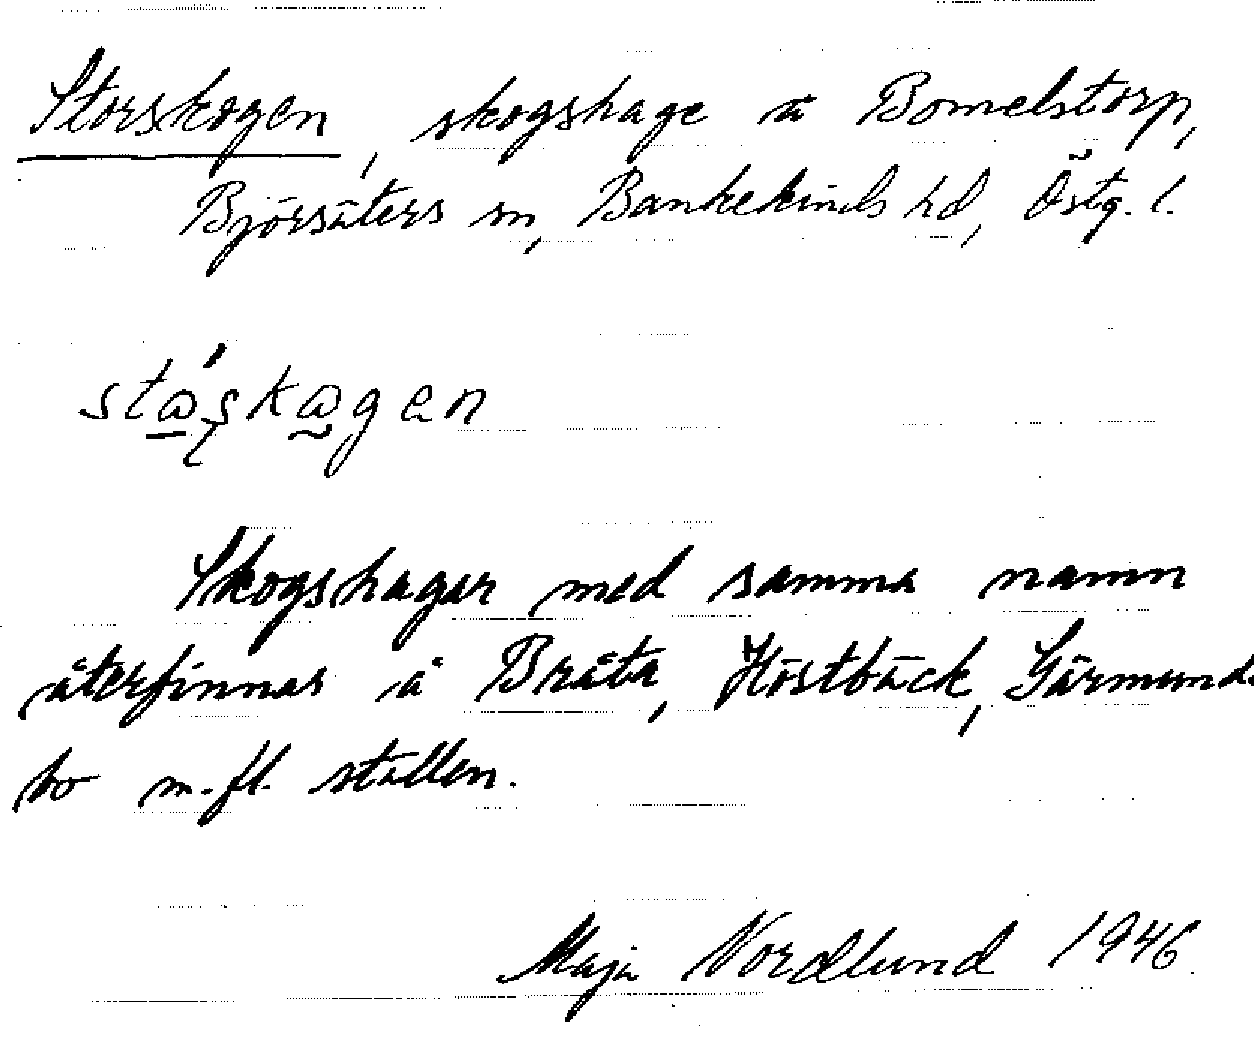 Storskogen, skogshage å Bomelstorp,
Björsäters sn, Bankekinds hd, Östg. l.
Skogshagar med samma namn
återfinnas å Bråta, Höstbäck, Gärmunds
bo m.fl. ställen.
Maja Nordlund 1946.